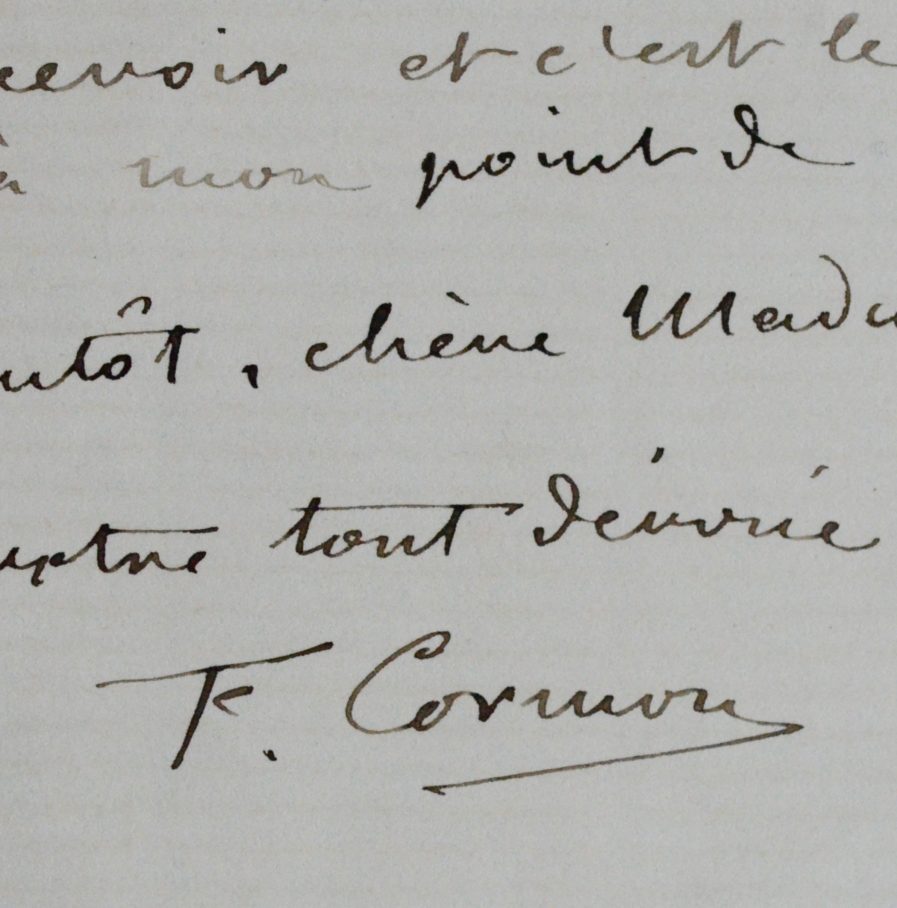 cevoir et c'est le
à mon point de
ntôt, chère Mada
tout dévoué
F. Cormon